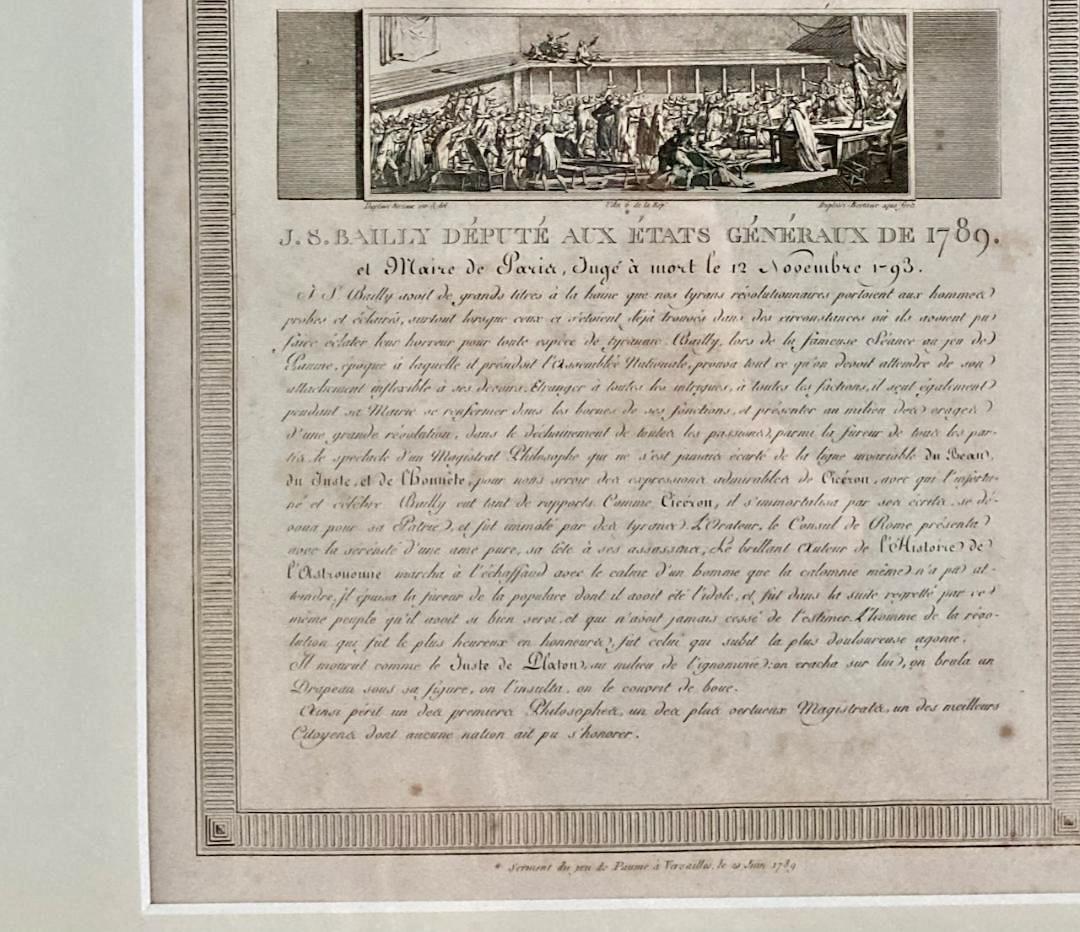 Duplessi-Bertaux inv. & del. l'An 6 de la Rep. Duplessi-Bertaux aqua forti
*
J. S. BAILLY DÉPUTÉ AUX ÉTATS GÉNÉRAUX DE 1789.
et Maire de Paris, Jugé à mort le 12 Novembre 1793.
J. S. Bailly avoit de grands titres à la haine que nos tyrans révolutionnaires portoient aux hommes
probes et éclairés, surtout lorsque ceux ci s'étoient déjà trouvés dans des circonstances où ils avoient pu
faire éclater leur horreur pour toute espèce de tyrannie. Bailly, lors de la fameuse Séance au jeu de
Paume, époque à laquelle il présidoit l'Assemblée Nationale, prouva tout ce qu'on devoit attendre de son
attachement inflexible à ses devoirs. Etranger à toutes les intrigues, à toutes les factions, il sçut également
pendant sa Mairie se renfermer dans les bornes de ses fonctions, et présenter au milieu des orages
d'une grande révolution, dans le déchainement de toutes les passions, parmi la fureur de tous les par-
tis, le spectacle d'un Magistrat Philosophe qui ne s'est jamais écarté de la ligne invariable du Beau,
du Juste, et de l'Honnête, pour nous servir des expressions admirables de Cicéron, avec qui l'infortu-
né et célèbre Bailly eut tant de rapports. Comme Cicéron, il s'immortalisa par ses écrits, se dé-
voua pour sa Patrie, et fut immolé par des tyrans. L'Orateur, le Consul de Rome présenta
avec la sérénité d'une ame pure, sa tête à ses assassins, Le brillant Auteur de l'Histoire de
l'Astronomie marcha à l'échaffaud avec le calme d'un homme que la calomnie même n'a pu at-
teindre, il épuisa la fureur de la populace dont il avoit été l'idole, et fut dans la suite regretté par ce
même peuple qu'il avoit si bien servi, et qui n'avoit jamais cessé de l'estimer. L'homme de la révo-
lution qui fut le plus heureux en honneurs, fut celui qui subit la plus douloureuse agonie.
Il mourut comme le Juste de Platon, au milieu de l'ignominie: on cracha sur lui, on brula un
Drapeau sous sa figure, on l'insulta, on le couvrit de boue.
Ainsi périt un des premiers Philosophes, un des plus vertueux Magistrats, un des meilleurs
Citoyens dont aucune nation ait pu s'honorer.
* Serment du jeu de Paume à Versailles, le 20 Juin 1789